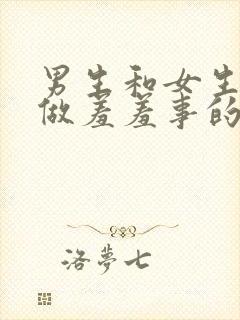 男生和女生
做羞羞事的
洛夢七